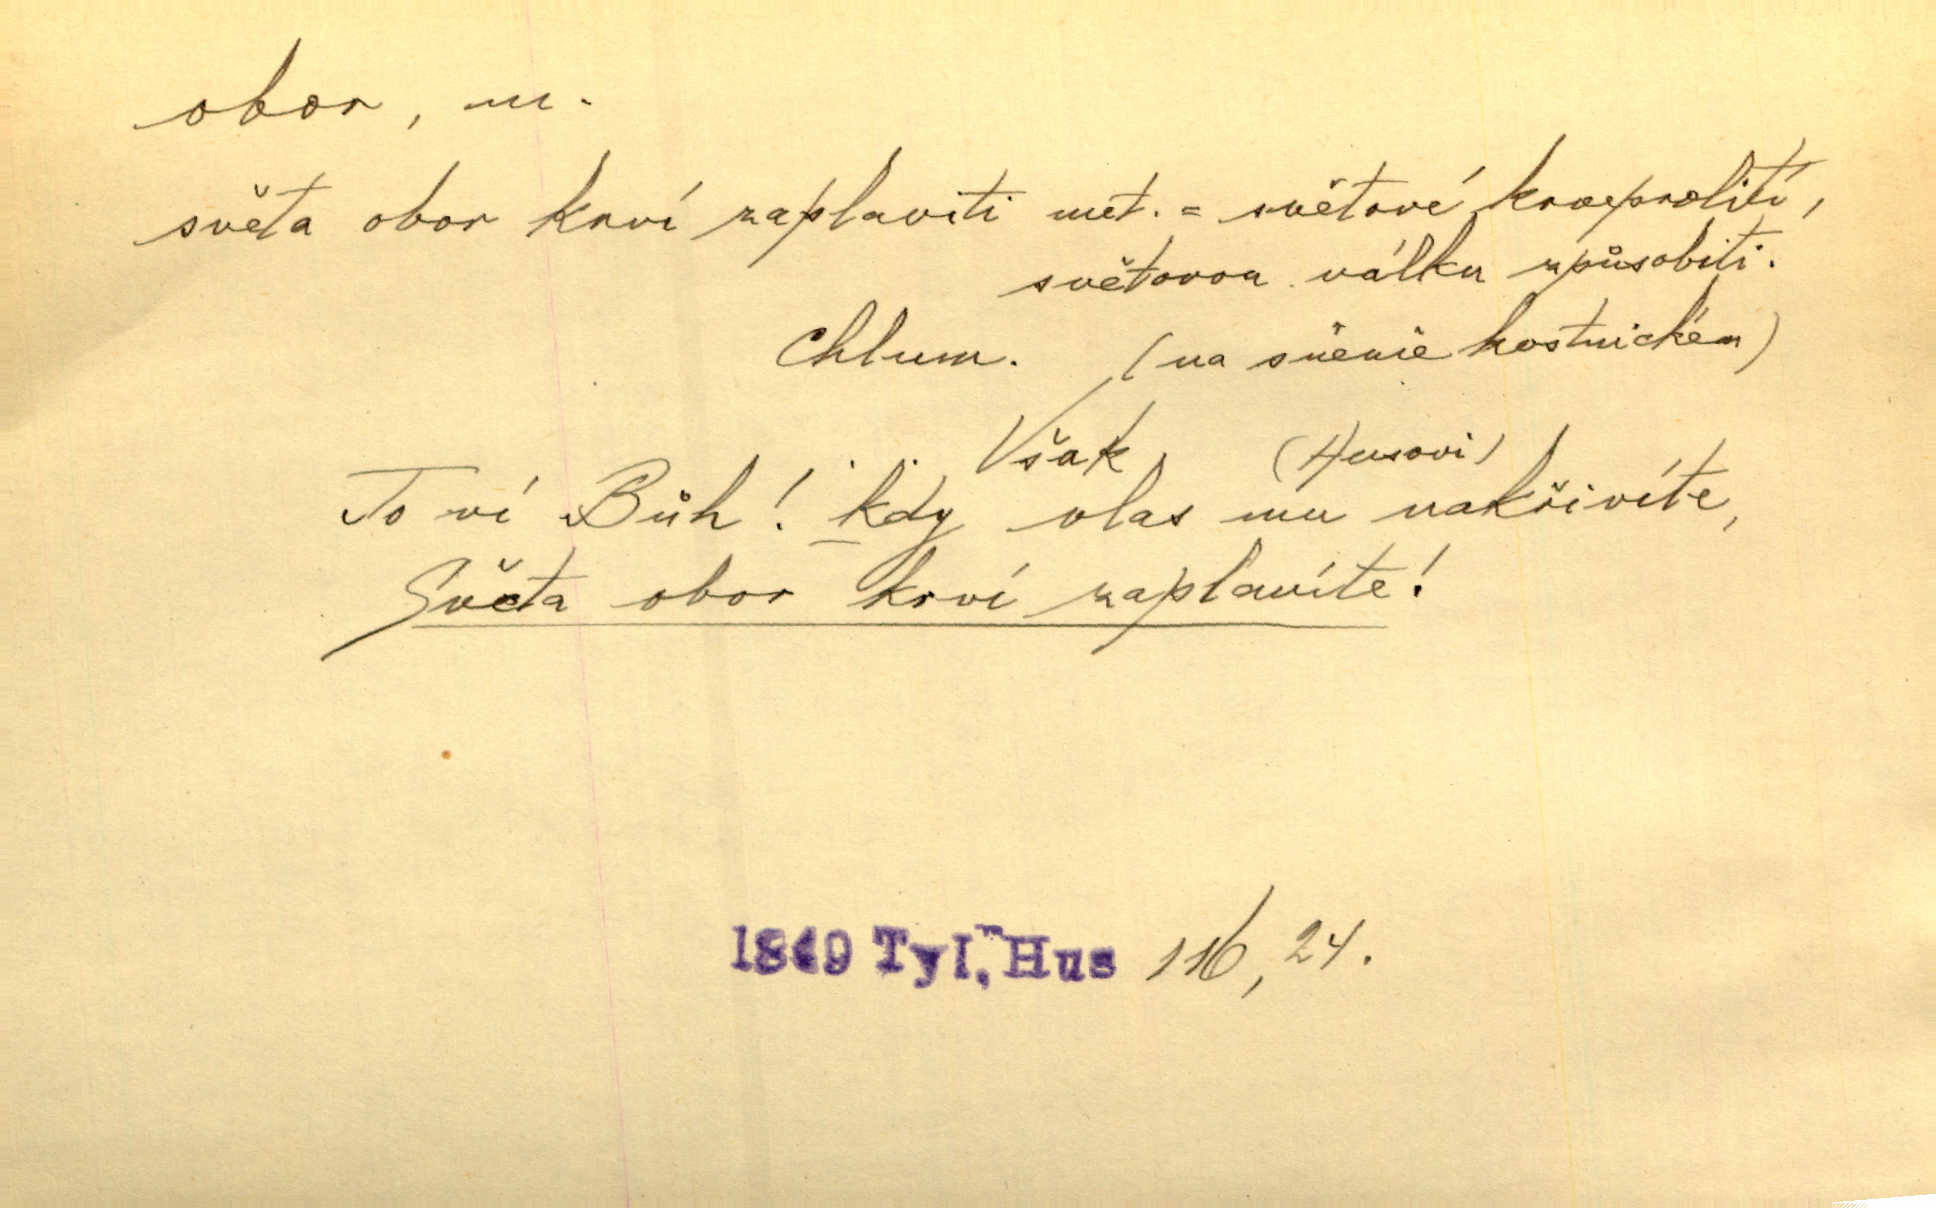 obor, m.
světa obor krví zaplaviti met. = světové krveprolití,
světovou válku způsobiti.
Chlum. (na sněmě kostnickém)
Však (Husovi)
To ví Bůh! kdy vlas mu nakřivíte,
Světa obor krví zaplavíte!
1849 Tyl, Hus 116, 24.